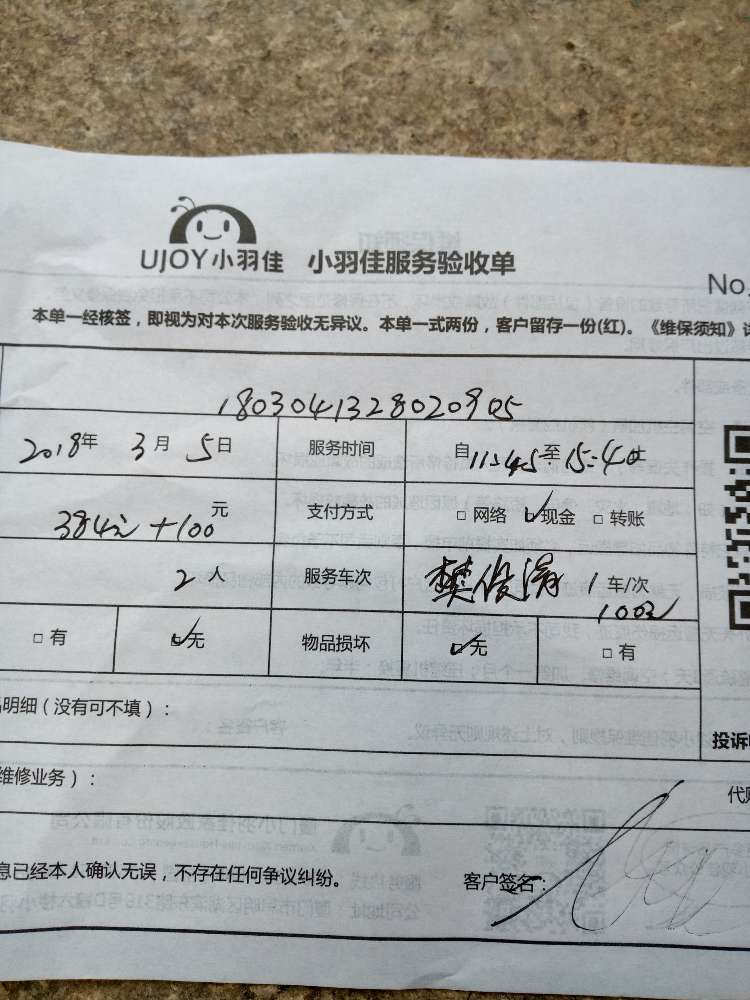 UJOY小羽佳 小羽佳服务验收单
No.
本单一经核签，即视为对本次服务验收无异议。本单一式两份，客户留存一份(红)。《维保须知》
1803041328020905
2018年 3月 5日 服务时间 自11:45至15:40止
384元+100元 支付方式 □网络 ☑现金 □转账
2人 服务车次 1车/次
100元
□有 ☑无 物品损坏 ☑无 □有
明细（没有可不填）：
投诉
维修业务）：
代
息已经本人确认无误，不存在任何争议纠纷。 客户签名：